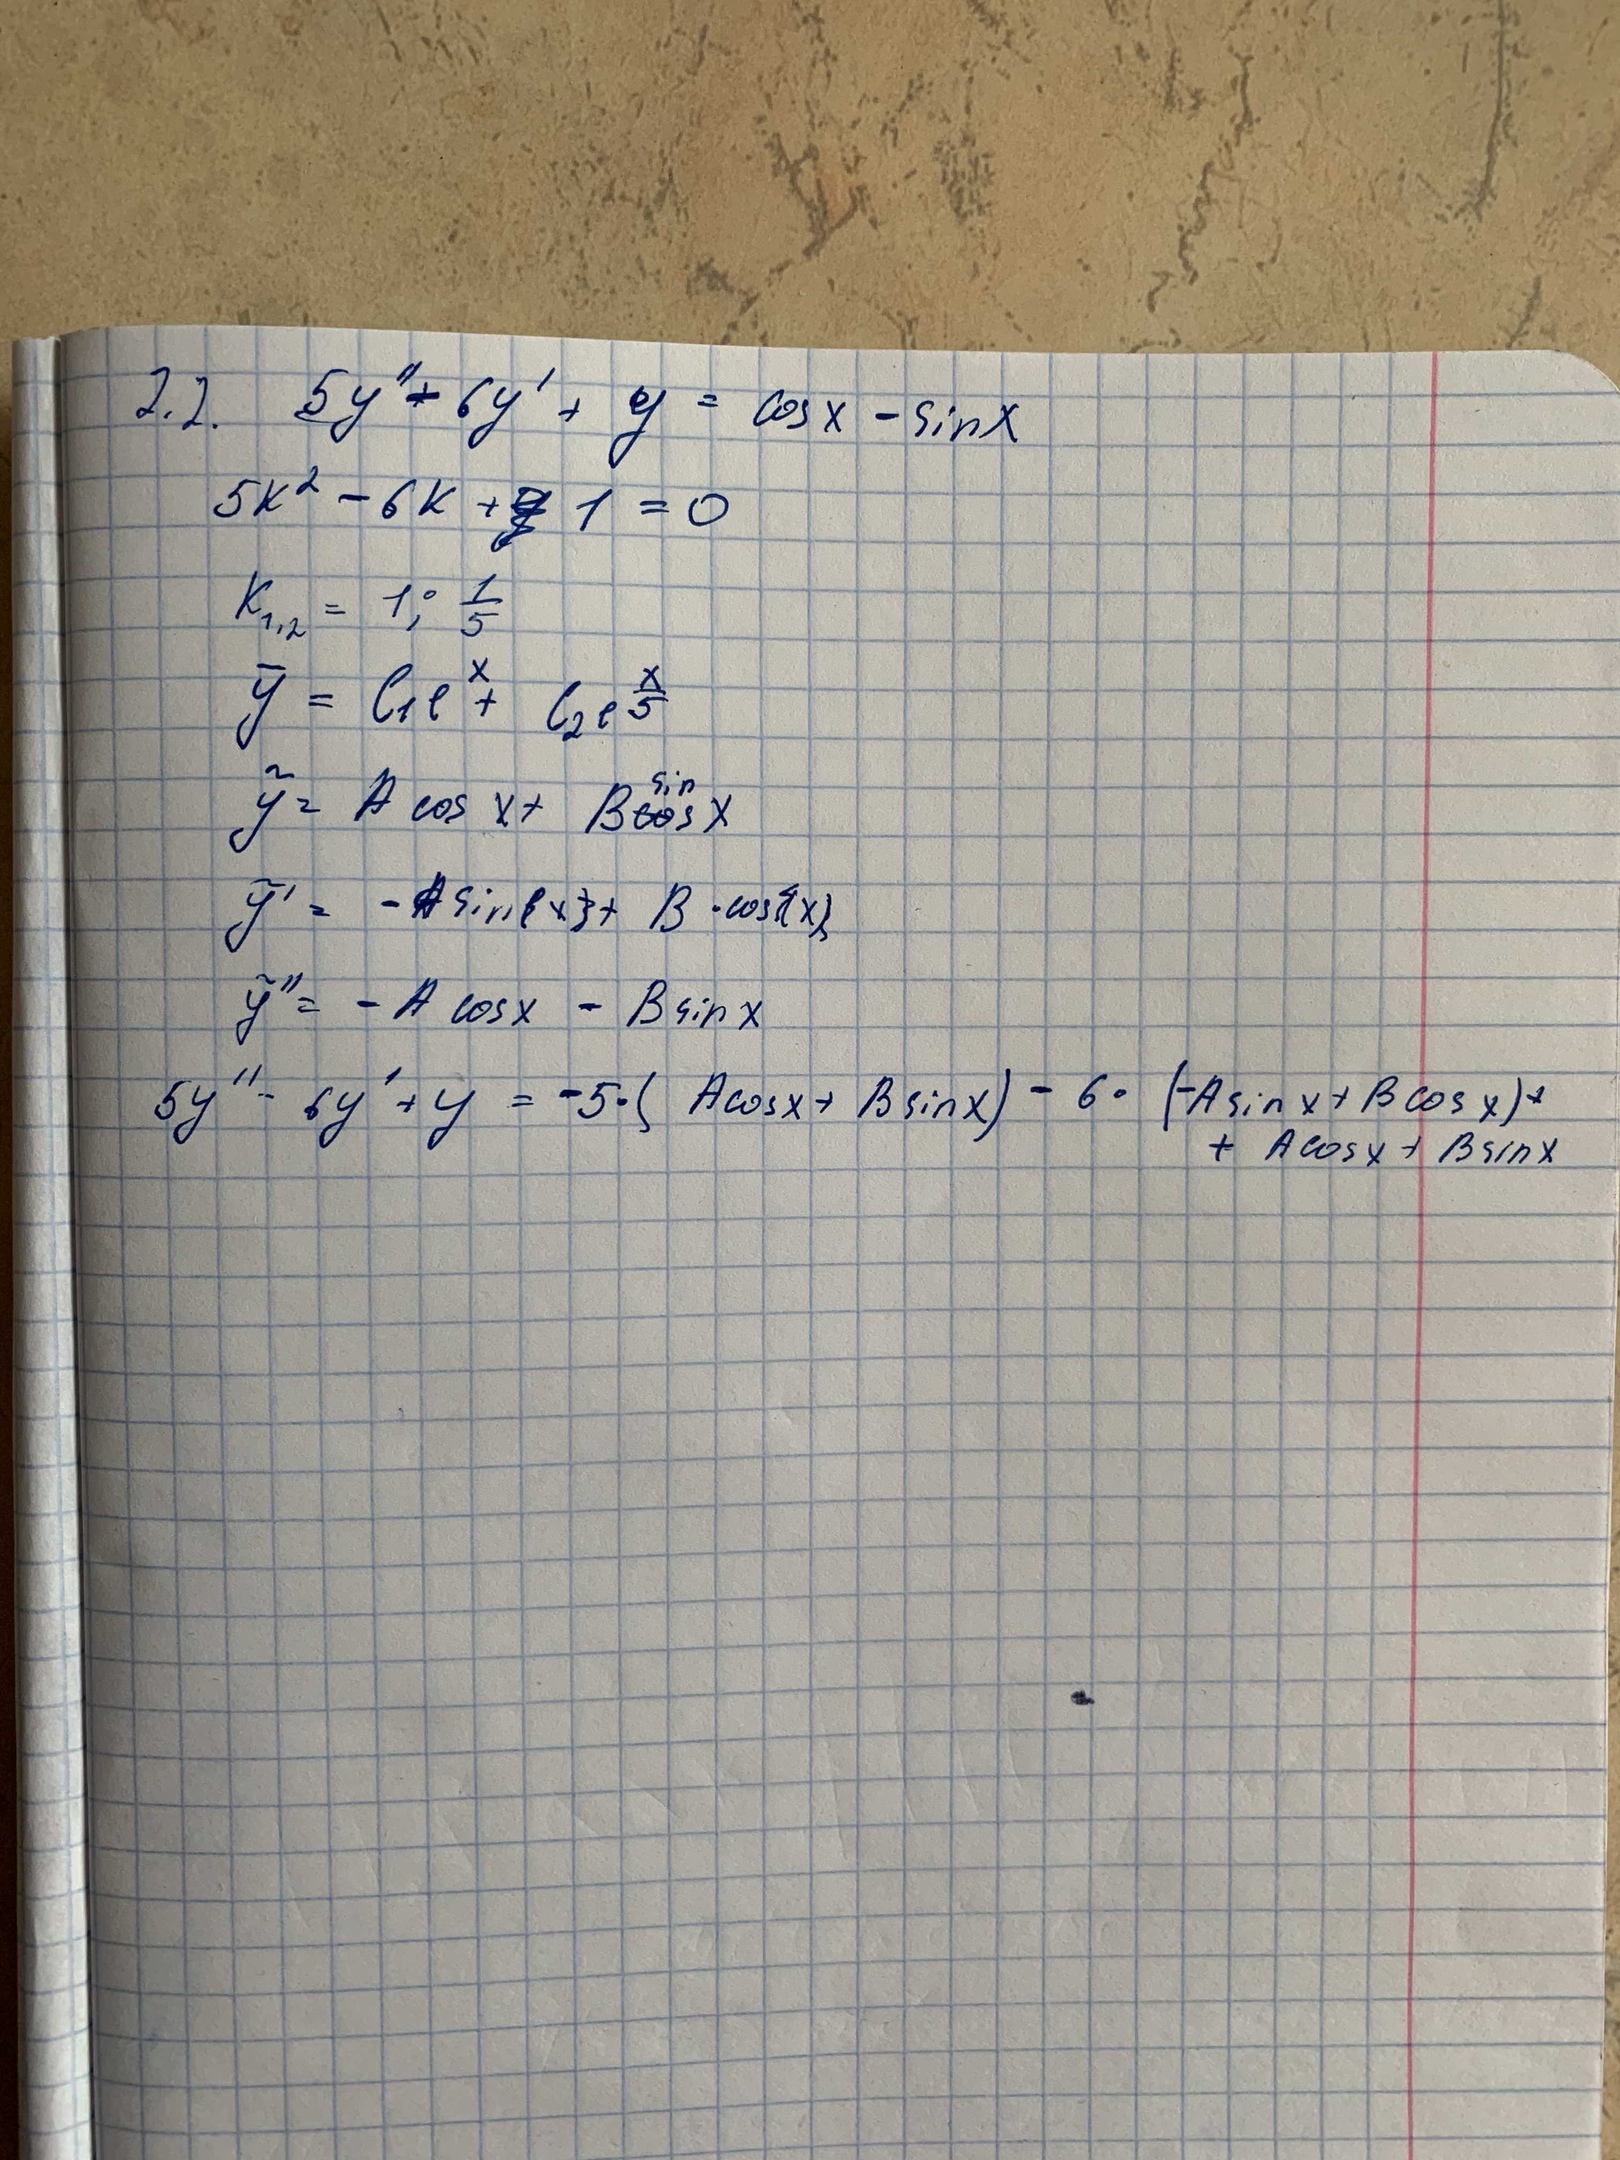 2.2. 5y'' - 6y' + y = cosx - sinx
5k² - 6k + 1 = 0
K₁,₂ = 1; 1/5
ȳ = C₁e^x + C₂e^(x/5)
ỹ = A cos x + B sin x
ỹ' = -A sin(x) + B · cos(x)
ỹ'' = - A cosx - B sinx
5y'' - 6y' + y = -5·( Acosx + Bsinx) - 6· (-Asinx + Bcosx) +
+ Acosx + Bsinx